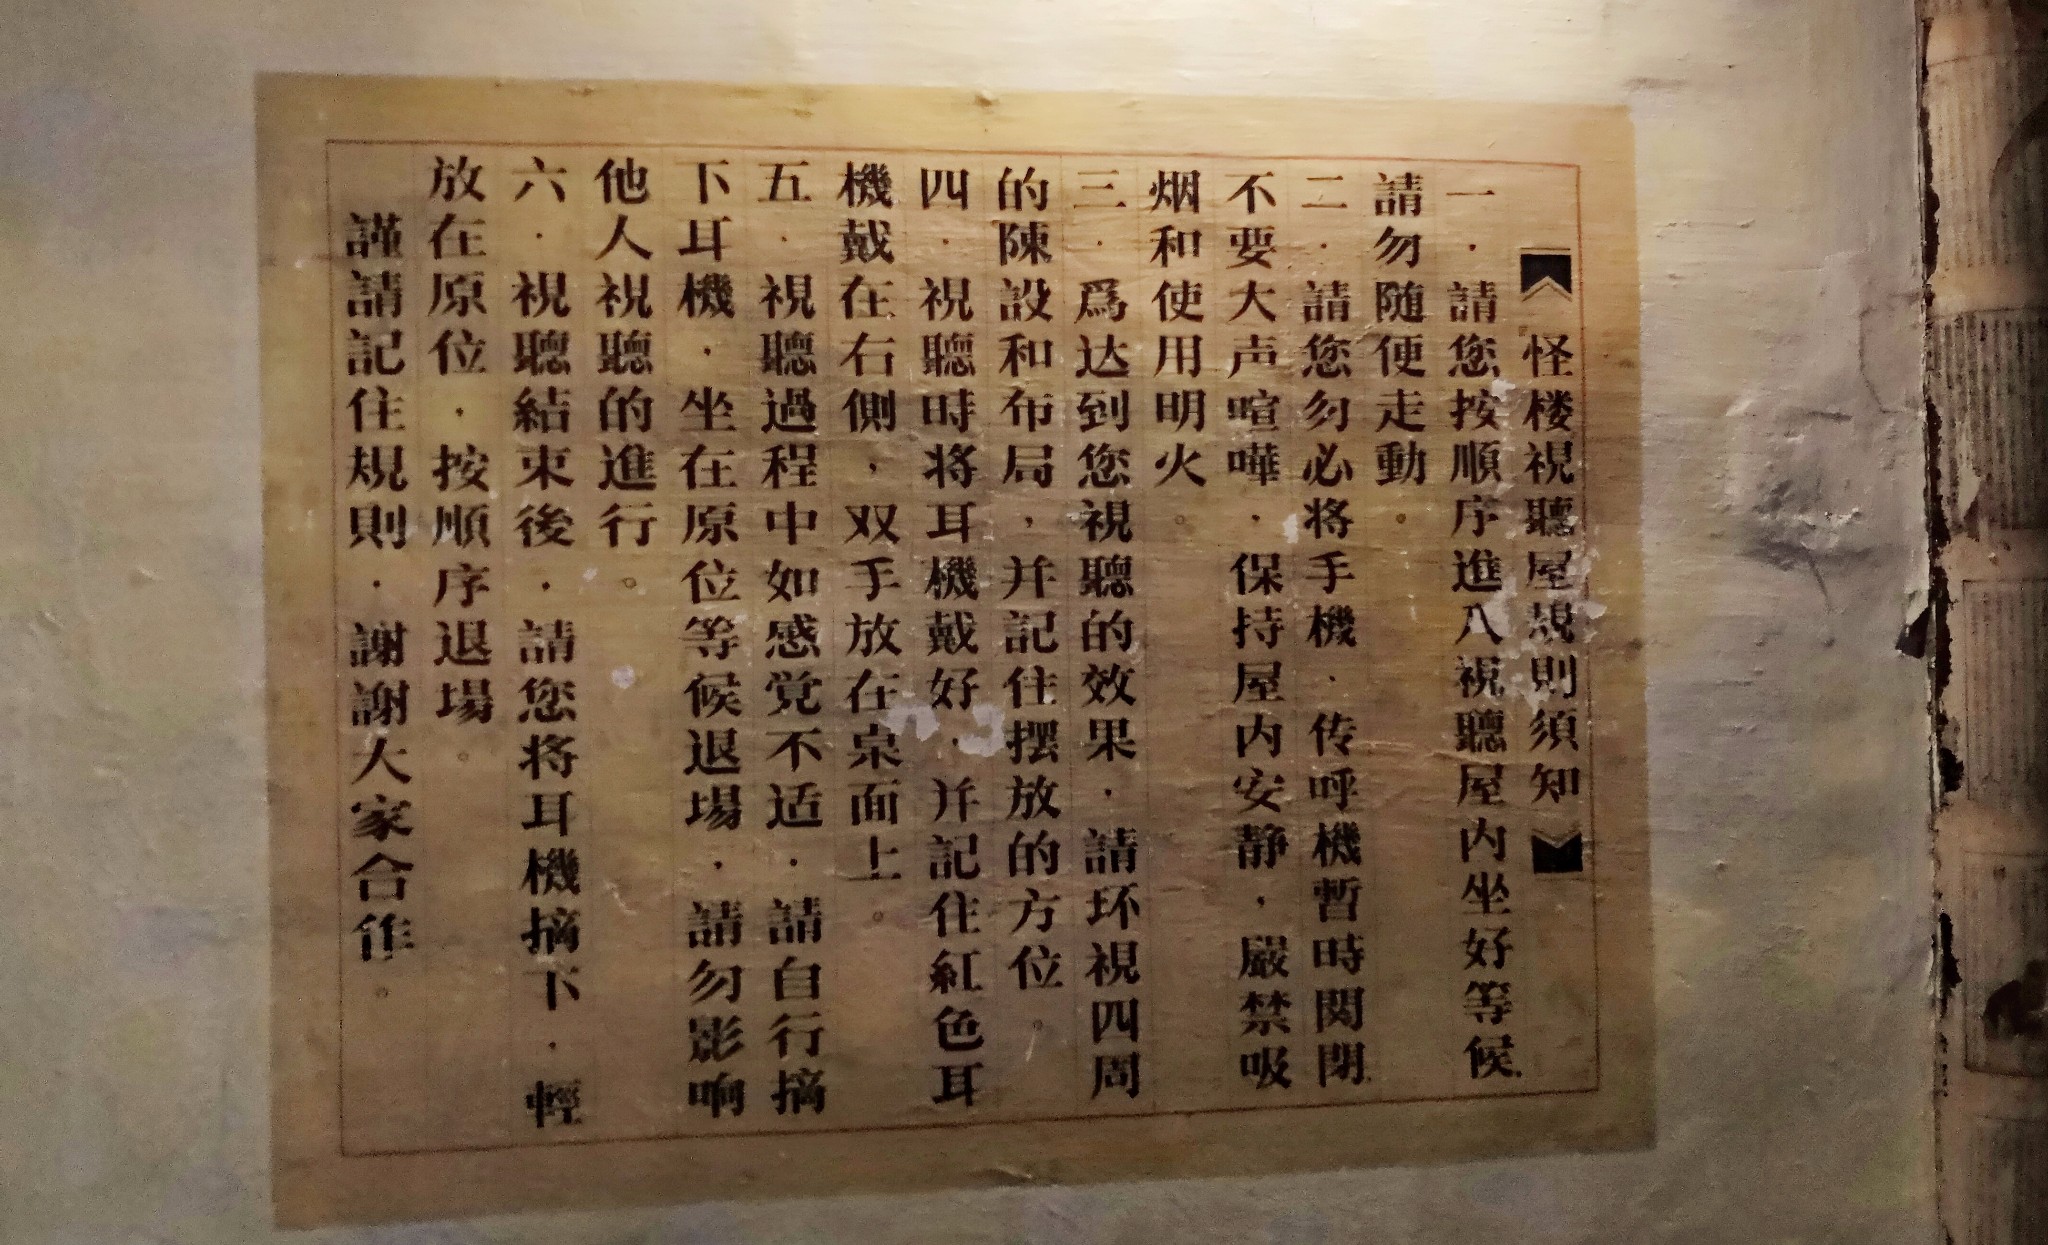 怪楼視聽屋規則須知
一．請您按順序進八視聽屋内坐好等候．
請勿随便走動。
二．請您勿必将手機．传呼機暫時関閉．
不要大声喧嘩．保持屋内安静，嚴禁吸
烟和使用明火。
三．爲达到您視聽的效果．請环視四周
的陳設和布局，并記住摆放的方位。
四．視聽時将耳機戴好．并記住紅色耳
機戴在右側，双手放在桌面上。
五．視聽過程中如感觉不适．請自行摘
下耳機．坐在原位等候退場．請勿影响
他人視聽的進行。
六．視聽結束後．請您将耳機摘下．輕
放在原位．按順序退場。
謹請記住規則．謝謝大家合作。